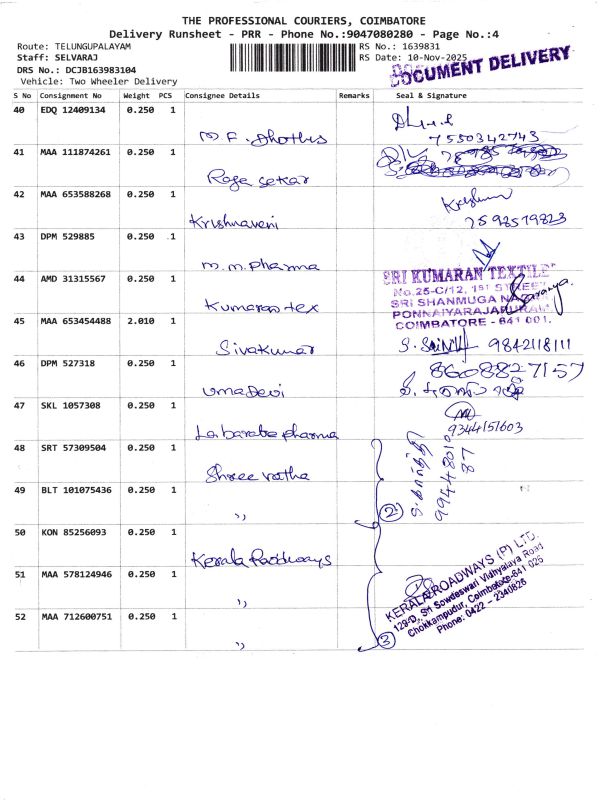 THE PROFESSIONAL COURIERS, COIMBATORE
Delivery Runsheet - PRR - Phone No.:9047080280 - Page No.:4
Route: TELUNGUPALAYAM
RS No.: 1639831
Staff: SELVARAJ
RS Date: 10-Nov-2025
DRS No.: DCJB163983104
DOCUMENT DELIVERY
Vehicle: Two Wheeler Delivery
S No Consignment No Weight PCS Consignee Details Remarks Seal & Signature
40 EDQ 12409134 0.250 1
M.F. Dhothis
7550342743
41 MAA 111874261 0.250 1
Raja sekar
42 MAA 653588268 0.250 1
Krishnaveni
Krishna
7598579823
43 DPM 529885 0.250 1
m.m. pharma
44 AMD 31315567 0.250 1
Kumaran tex
SRI KUMARAN TEXTILE
No.25-C/12, 1ST STREET
SRI SHANMUGA NAGAR
PONNAIYARAJAPURAM
COIMBATORE - 641 001.
Saranya.
45 MAA 653454488 2.010 1
Sivakumar
9842118111
46 DPM 527318 0.250 1
Uma Devi
8608827157
47 SKL 1057308 0.250 1
pharma
9344151603
48 SRT 57309504 0.250 1
Shree
49 BLT 101075436 0.250 1
"
2
ச. கார்த்தி
9944801087
50 KON 85256093 0.250 1
Kerala Roadways
51 MAA 578124946 0.250 1
"
52 MAA 712600751 0.250 1
"
3
KERALA ROADWAYS (P) LTD.
129-D, Sri Sowdeswari Vidhyalaya Road
Chokkampudur, Coimbatore-641 025
Phone: 0422 - 2340826